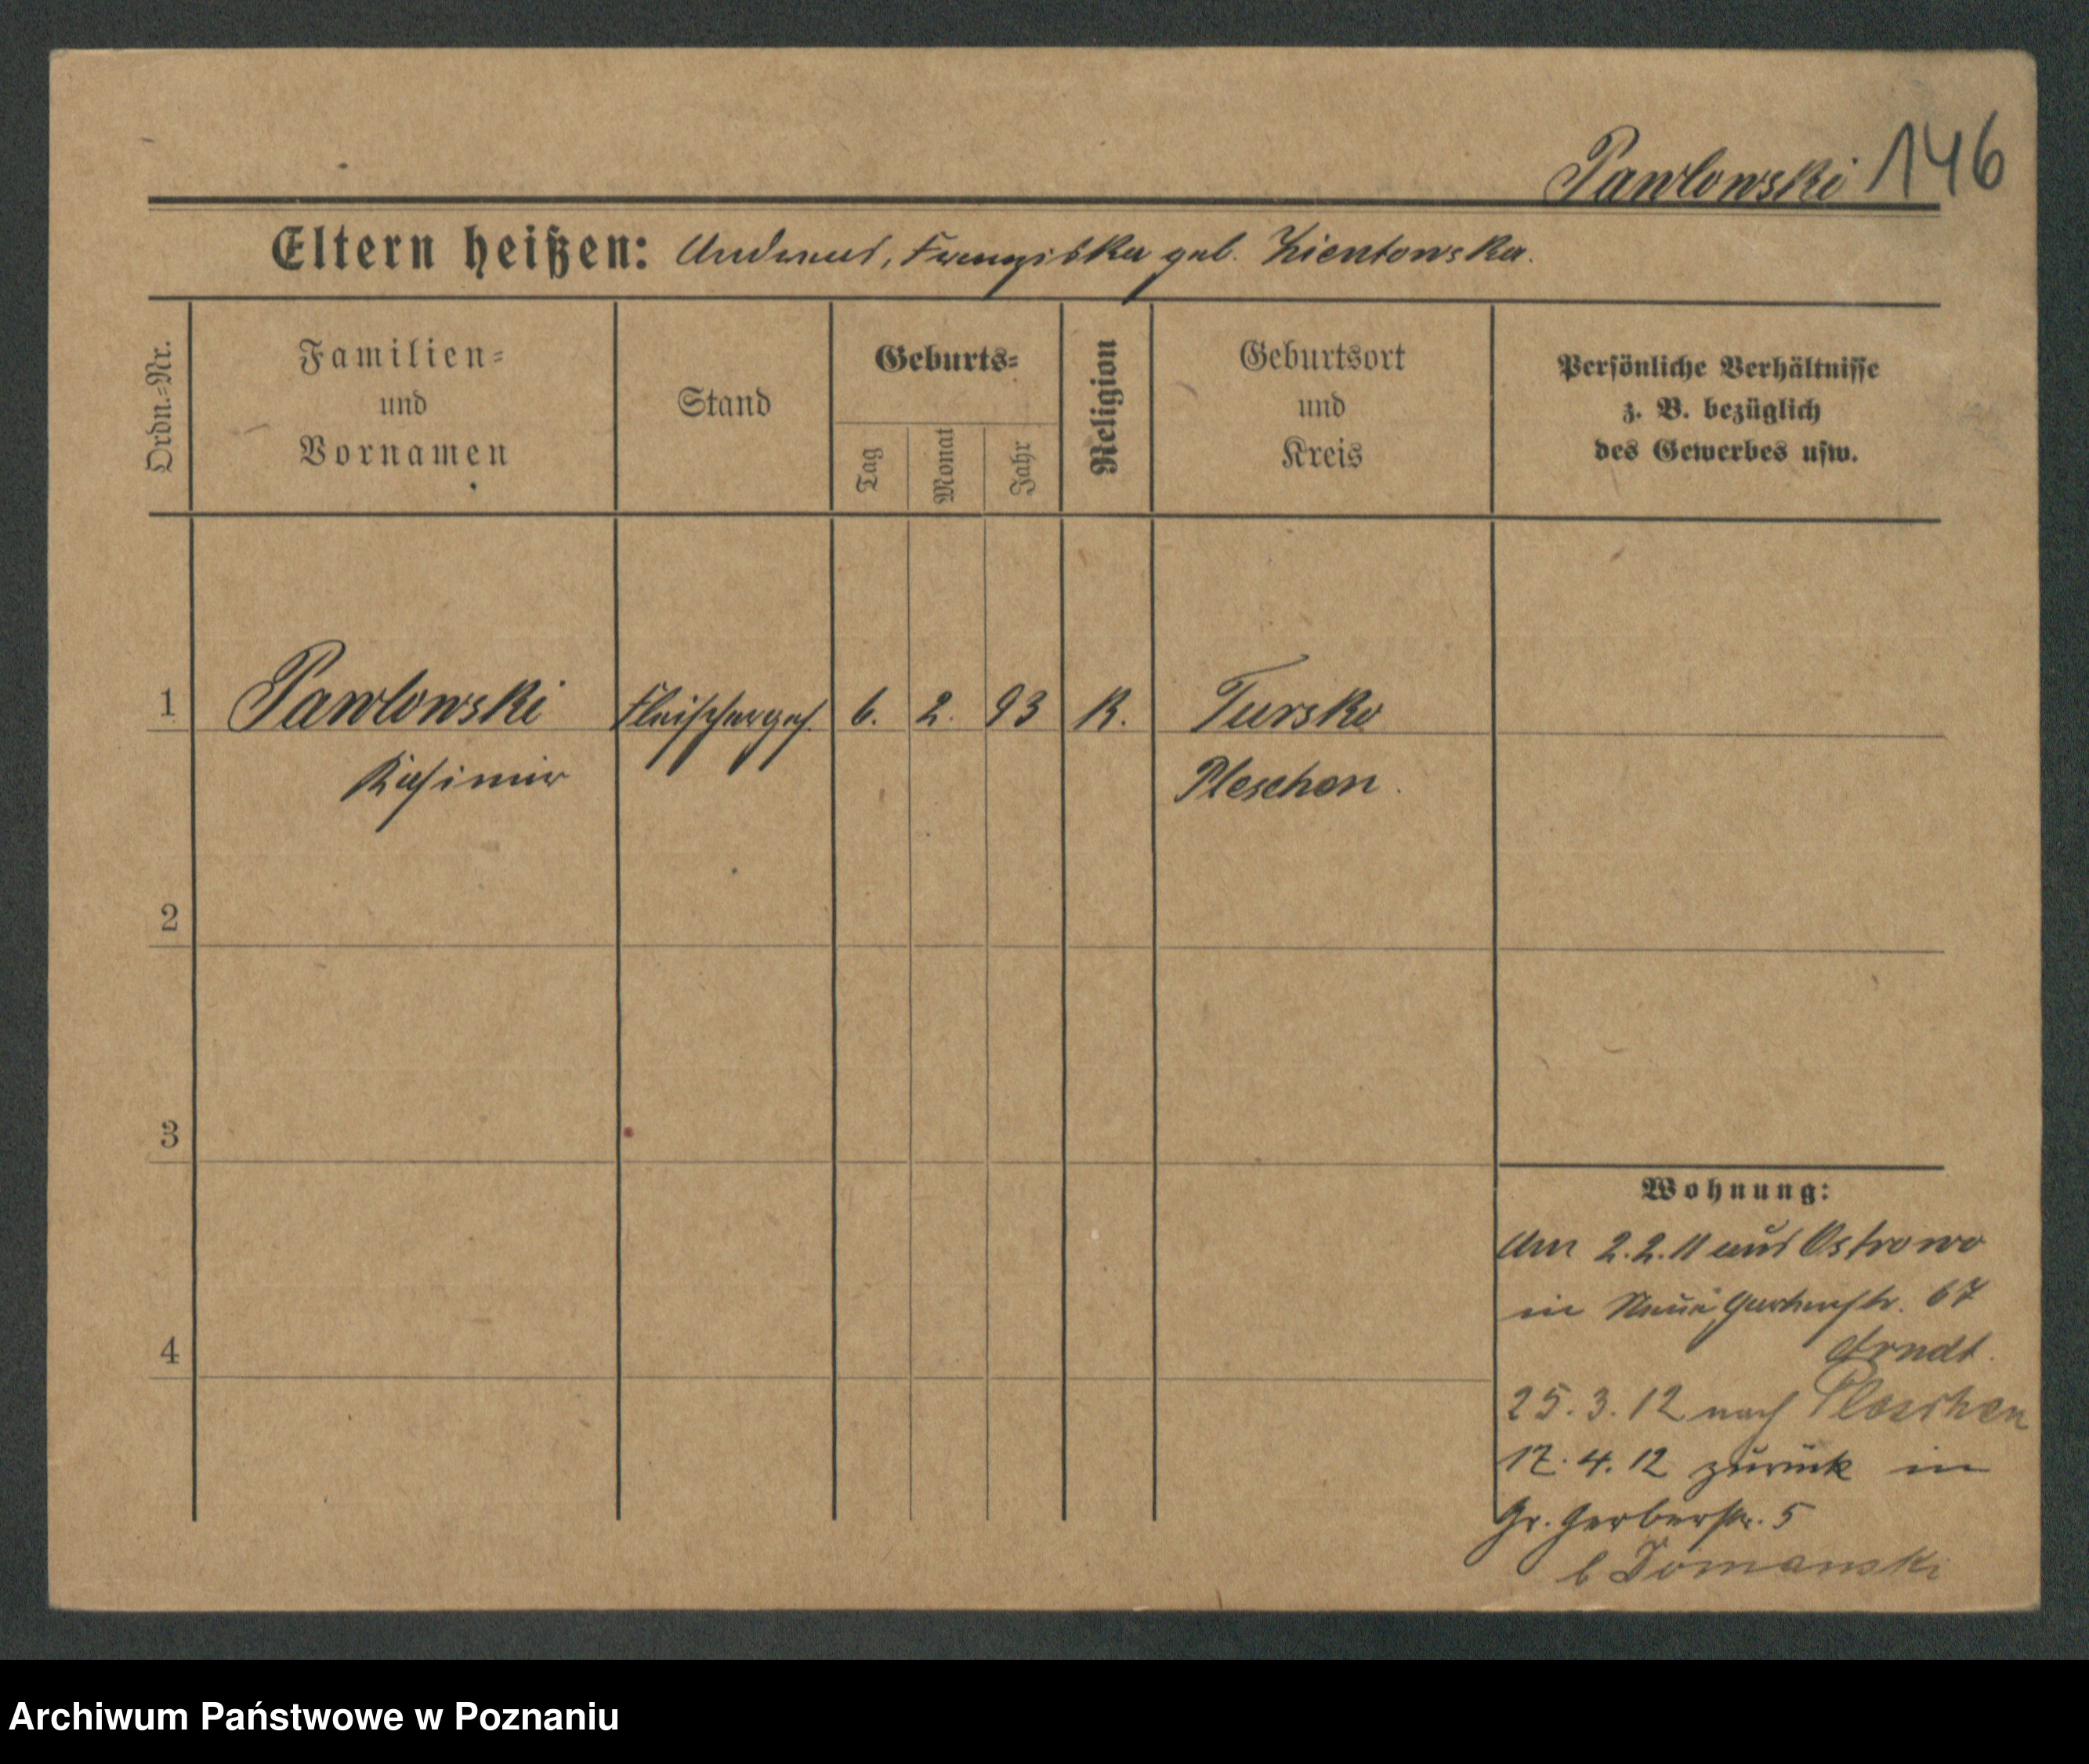 Pawlowski 146
Eltern heißen: Andreas, Franziska geb. Zientowska.
Ordn.=Nr.
Familien=
und
Vornamen
Stand
Geburts=
Tag
Monat
Jahr
Religion
Geburtsort
und
Kreis
Persönliche Verhältnisse
z. B. bezüglich
des Gewerbes usw.
1 Pawlowski Fleischerges. 6. 2. 93 K. Tursko
Kasimir Pleschen.
2
3
4
Wohnung:
Am 2.2.11 aus Ostrowo
in Neue Gartenstr. 67
Arndt.
25.3.12 nach Pleschen
17.4.12 zurück in
Gr. Gerberstr. 5
b Domanski
Archiwum Państwowe w Poznaniu